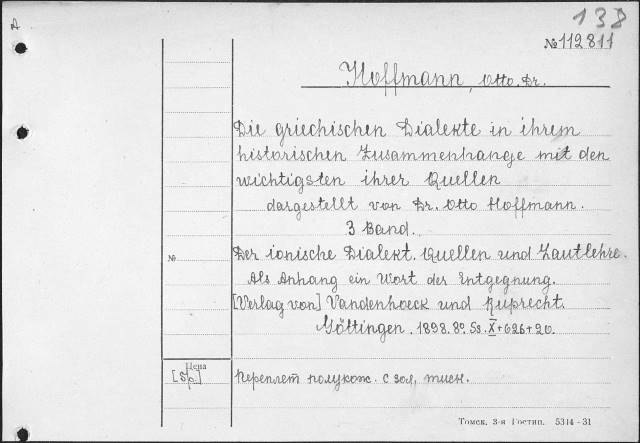 A
138
№112811
Hoffmann, Otto. Dr.
Die griechischen Dialekte in ihrem
historischen Zusammenhange mit den
wichtigsten ihrer Quellen
dargestellt von Dr. Otto Hoffmann.
3 Band.
№
Der ionische Dialekt. Quellen und Lautlehre.
Als Anhang ein Wort der Entgegnung.
[Verlag von] Vandenhoeck und Ruprecht.
Göttingen. 1898. 8º. Ss. X+626+20.
Цена
[5р.]
Переплет полукож. с зол. тисн.
Томск. 3-я Гостип. 5314-31